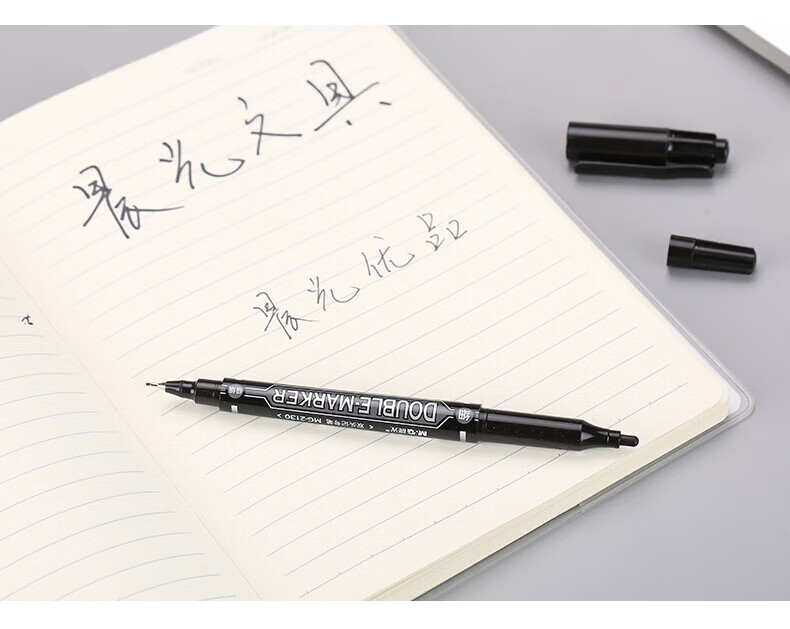 晨光文具
晨光优品
细
DOUBLE-MARKER
M&G 晨光
< 双头记号笔 MG-2130 >